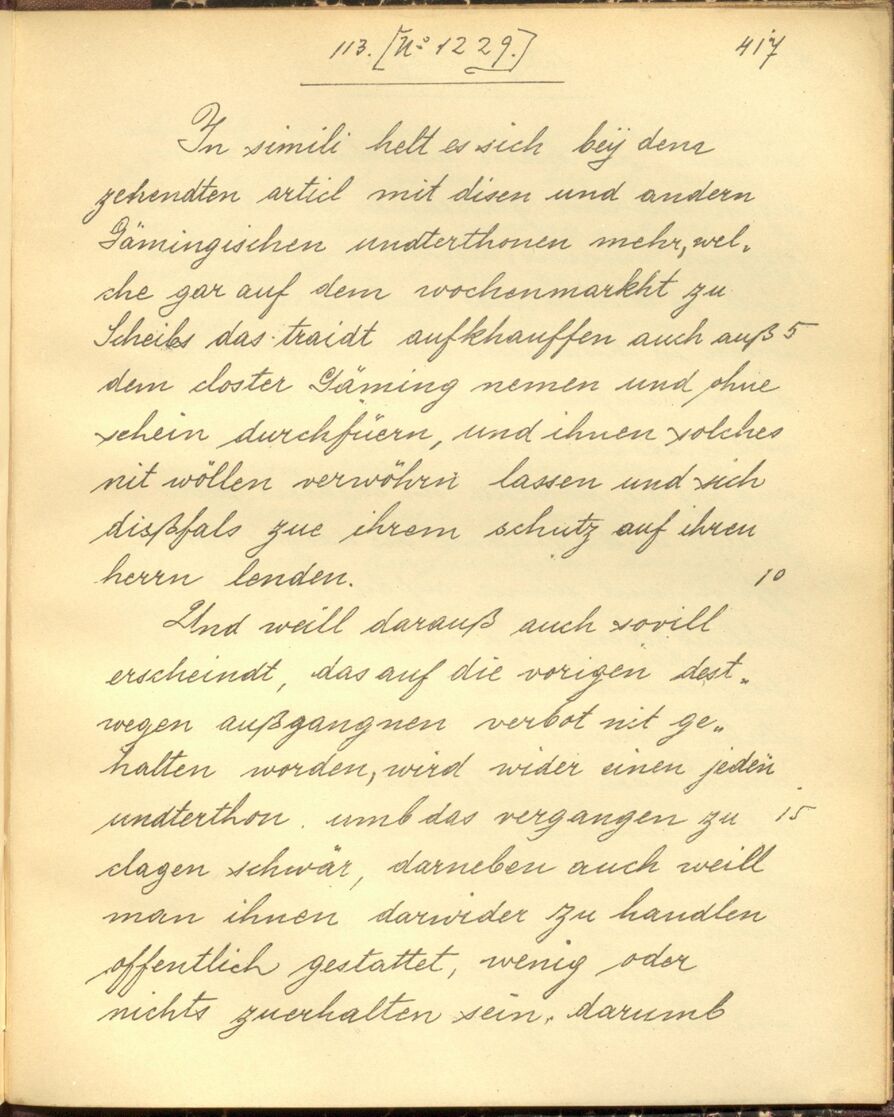 113. [No 1229.] 417
In simili helt es sich beÿ dem
zehendten articl mit disen und andern
Gämingischen undterthonen mehr, wel„
che gar auf dem wochenmarkht zu
Scheibs das traidt aufkhauffen auch auß 5
dem closter Gäming nemen und ohne
schein durchfüern, und ihnen solches
nit wöllen verwöhrn lassen und sich
dißfals zue ihrem schutz auf ihren
herrn lenden. 10
Und weill darauß auch sovill
erscheindt, das auf die vorigen dest„
wegen außgangnen verbot nit ge„
halten worden, wird wider einen jeden
undterthon umb das vergangen zu 15
clagen schwär, darneben auch weill
man ihnen darwider zu handlen
offentlich gestattet, wenig oder
nichts zuerhalten sein. darumb